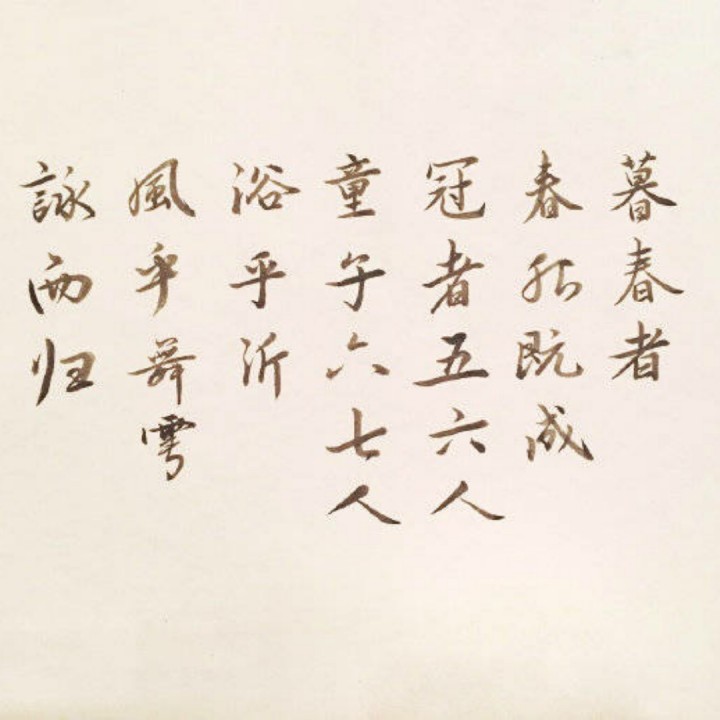 暮春者
春服既成
冠者五六人
童子六七人
浴乎沂
風乎舞雩
詠而归